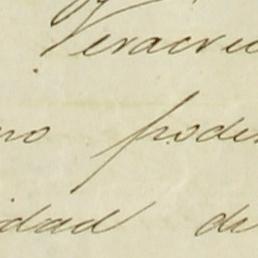 Veracru
no poder
idad de